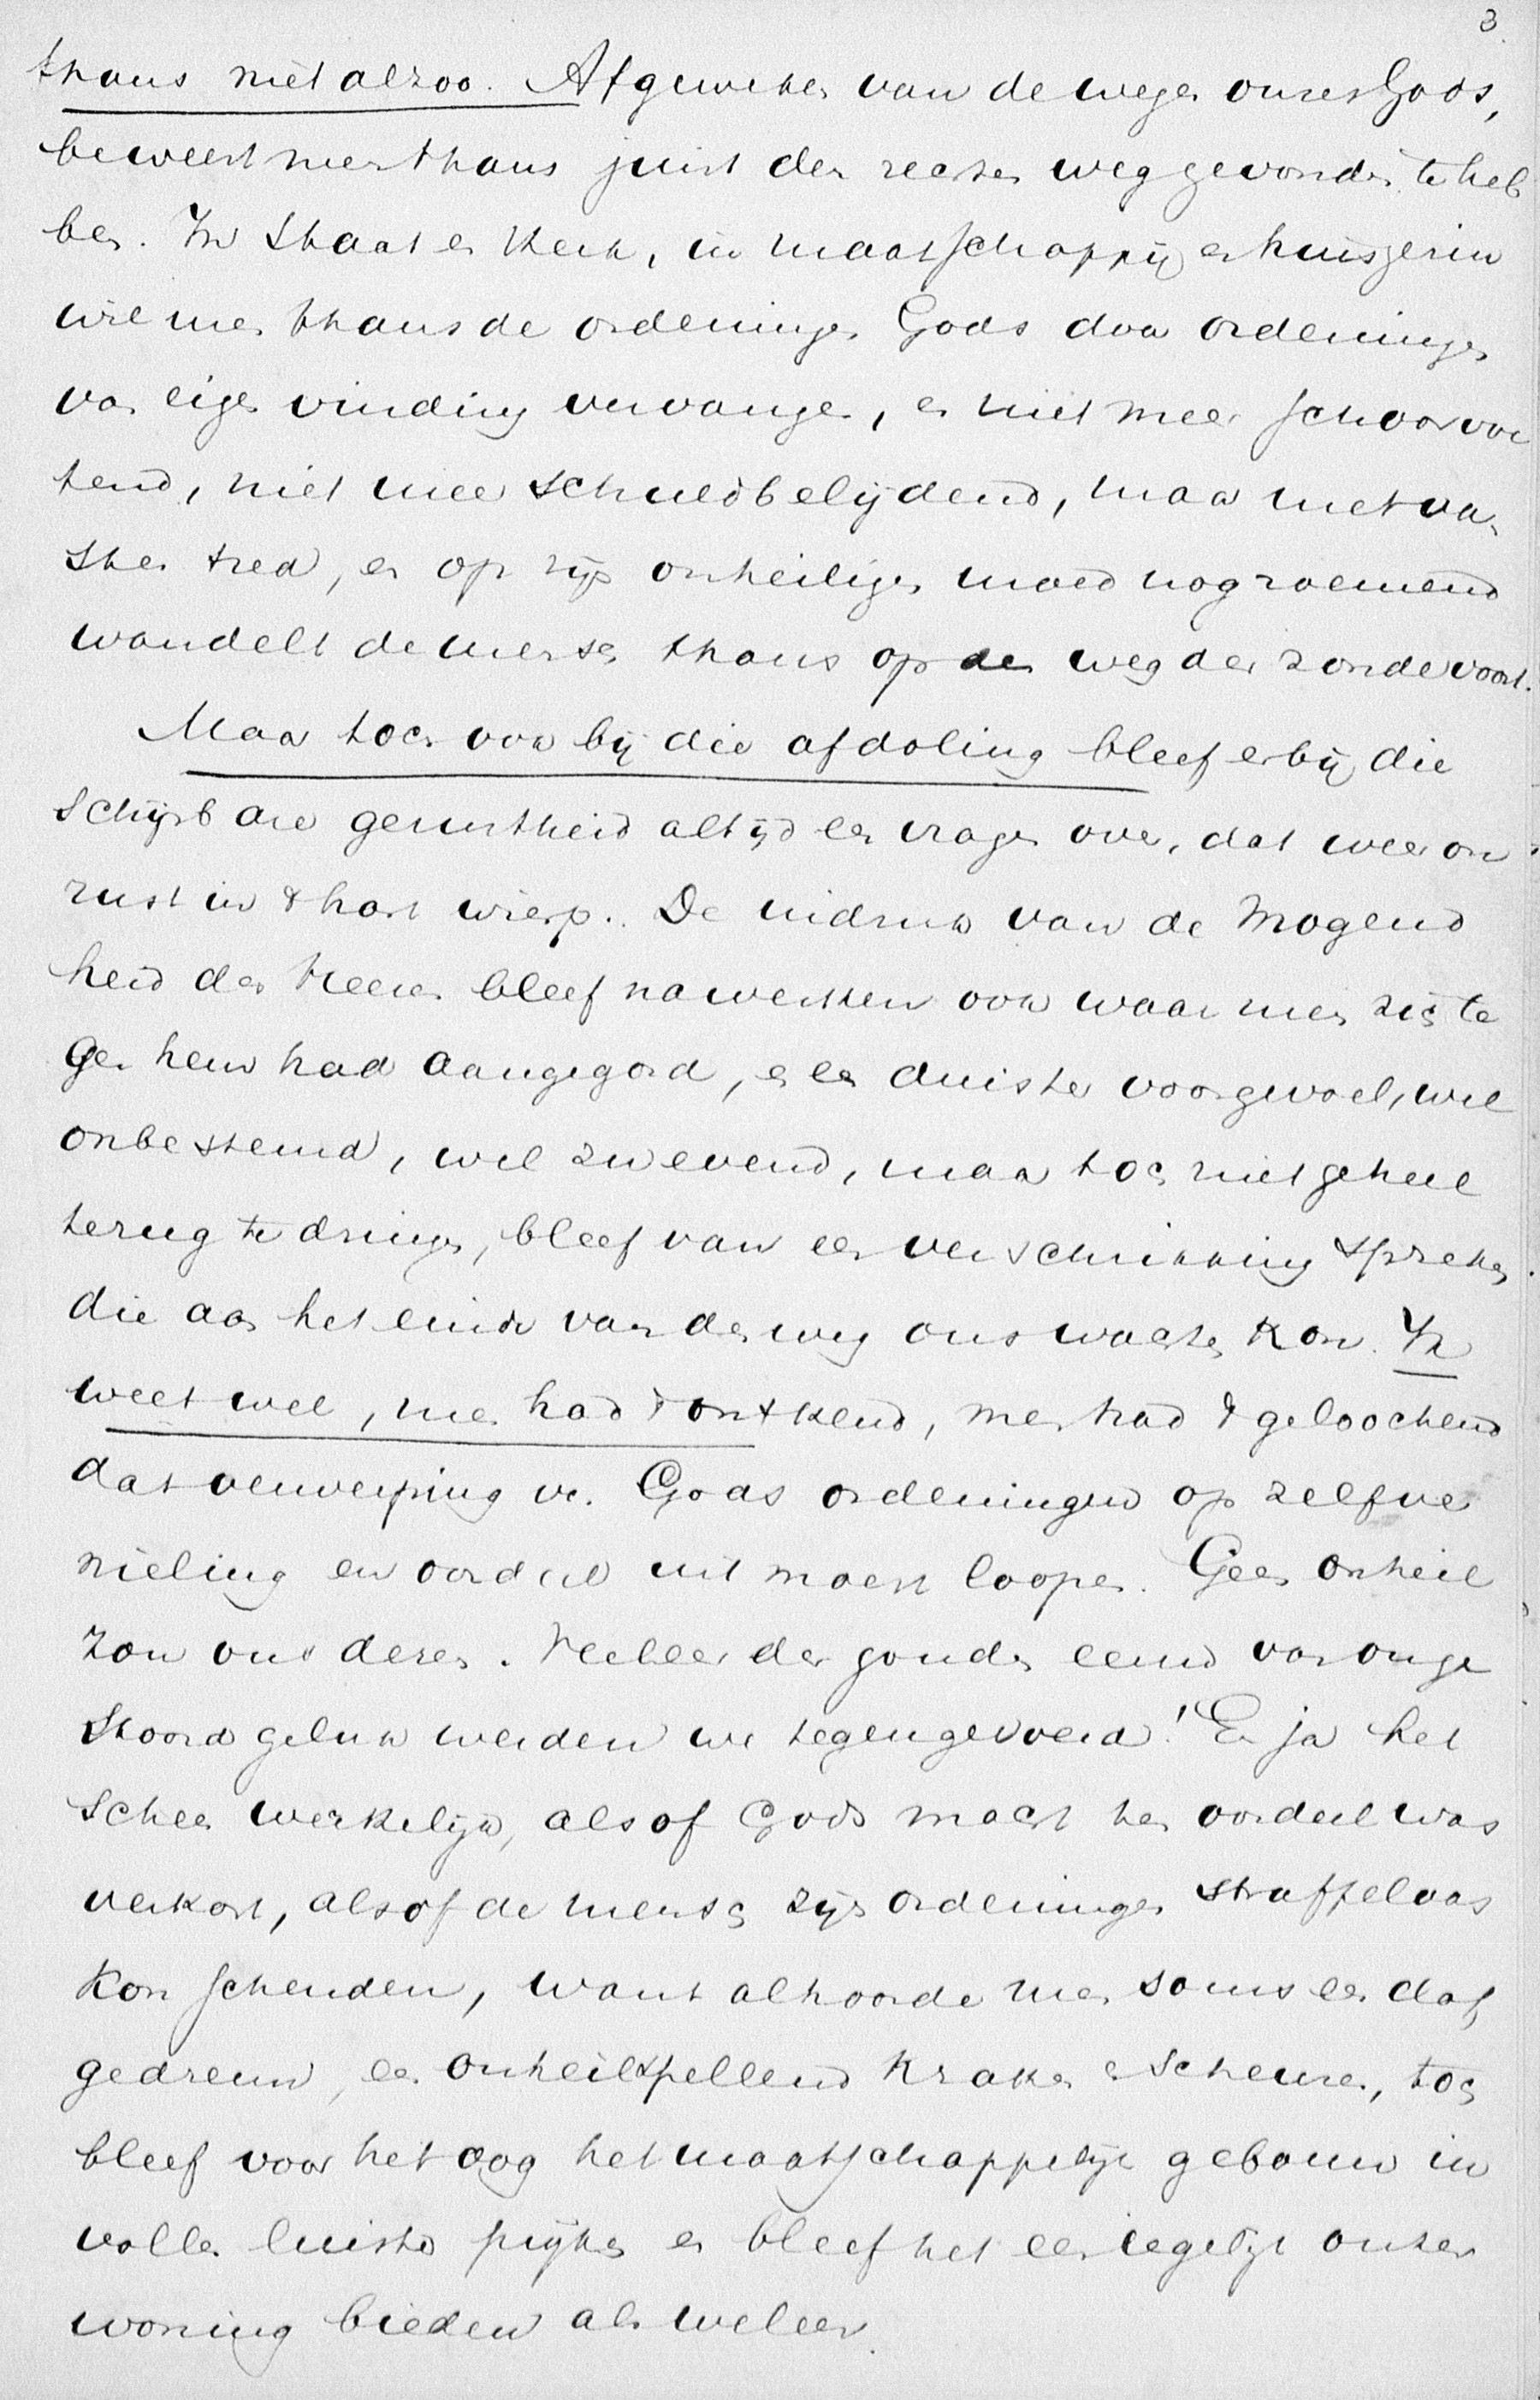 3.
thans niet alzoo. Afgeweken van de wegen onzes Gods,
beweert men thans juist den rechten weg gevonden te heb
ben. In Staat en Kerk, in maatschappij en huisgezin
wil men thans de ordeningen Gods door ordeningen
van eigen vinding vervangen, en niet meer schoorvoe
tend, niet meer schuldbelijdend, maar met va-
sten tred, en op zijn onheiligen moed nog roemend
wandelt de mensch thans op den weg der zonde voort.
Maar toch ook bij die afdoling bleef er bij die
schijnbare gerustheid altijd een vragen over, dat weer on
rust in 't hart wierp. De indruk van de Mogend
heid des Heeren bleef nawerken ook waar men zich te
gen hem had aangegord, en een duister voorgevoel, wel
onbestemd, wel zwevend, maar toch niet geheel
terug te dringen, bleef van een verschrikking spreken
die aan het einde van den weg ons wachten kon. Ik
weet wel, men had 't ontkend, men had 't geloochend
dat verwerping v. Gods ordeningen op zelfver
nieling en oordeel uit moest loopen. Geen onheil
zou ons deren. Veeleer der gouden eeuw van onge
stoord geluk werden we tegengevoerd! En ja het
scheen werkelijk, alsof Gods macht ten oordeel was
verkort, alsof de mensch zijn ordeningen straffeloos
kon schenden, want al hoorde men soms een dof
gedreun, een onheilspellend kraken en scheuren, toch
bleef voor het oog het maatschappelijk gebouw in
vollen luister prijken en bleef het een iegelijk onzer
woning bieden als weleer.